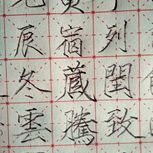 辰宿列
冬藏閏
雲騰致